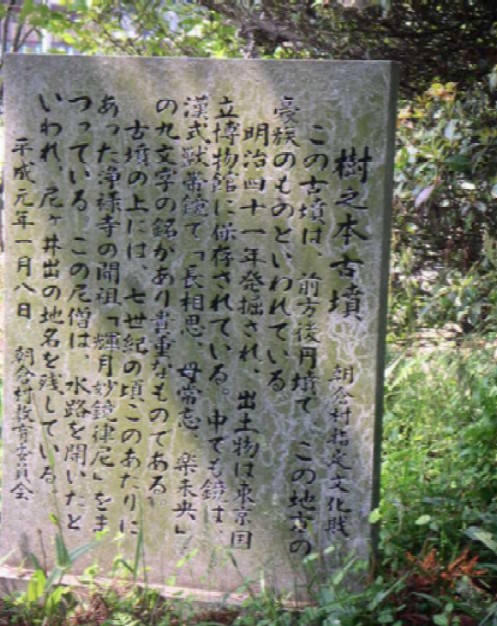 樹之本古墳 朝倉村指定文化財
この古墳は、前方後円墳で この地方の
豪族のものといわれている
明治四十一年発掘され、出土物は東京国
立博物館に保存されている。中でも鏡は、
漢式獣帯鏡で「長相思、毋常忘、楽未央」
の九文字の銘があり貴重なものである。
古墳の上には、七世紀の頃このあたりに
あった浄禄寺の開祖「輝月妙鏡律尼」をま
つっている この尼僧は、水路を開いたと
いわれ、尼ヶ井出の地名を残している。
平成元年一月八日 朝倉村教育委員会